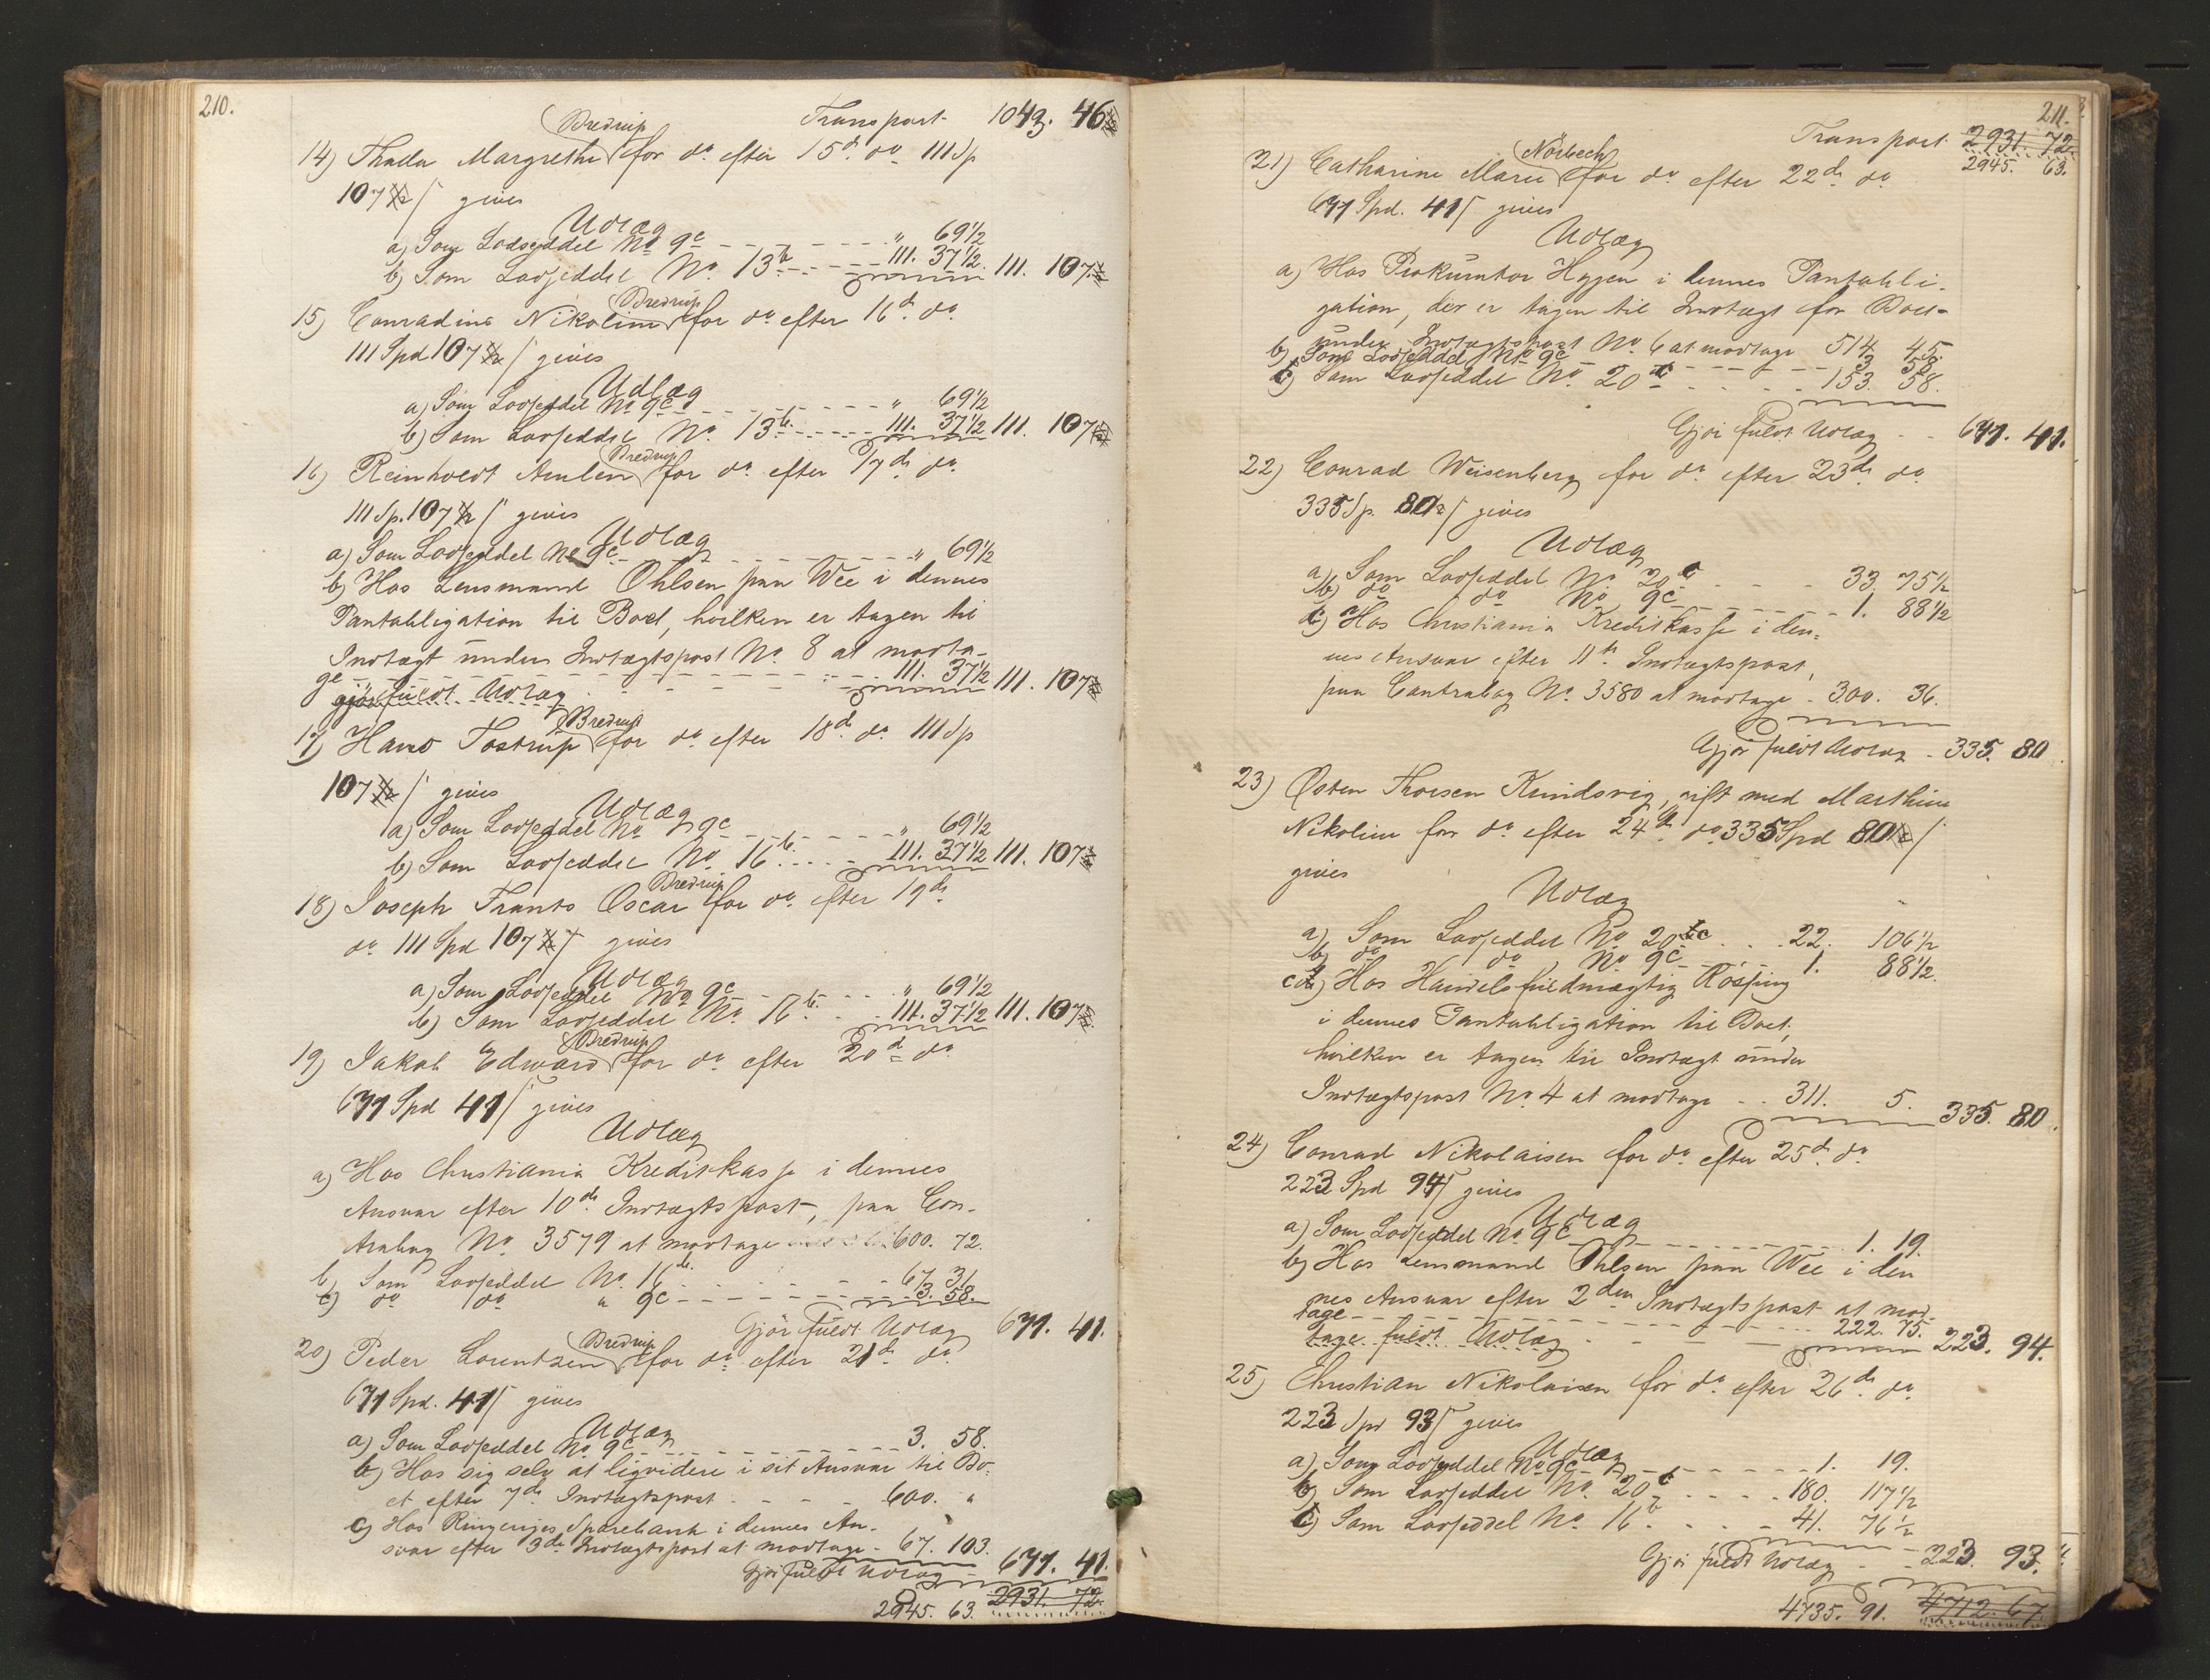 210.
Transport 1043. 46
Bredrup
14) Thada Margrethe for do efter 15de do 111 Sp
107 ß gives
Udlæg
a) Som Lodseddel No 9c - - - " 69 1/2
b) Som Lodseddel No. 13b - - - 111. 37 1/2 111. 107
Bredrup
15) Conradine Nikoline for do efter 16de do
111 Spd 107 ß gives
Udlæg
a) Som Lodseddel No 9c - - - " 69 1/2
b) Som Lodseddel No. 13b - - - 111. 37 1/2 111. 107
Bredrup
16) Reinholdt Amlen for do efter 17de do
111 Sp. 107 ß gives
Udlæg
a) Som Lodseddel No 9c - - - " 69 1/2
b) Hos Lensmand Ohlsen paa Wee i dennes
Pantobligation til Boet, hvilken er tagen til
Indtægt under Indtægtspost No. 8 at modta-
ge - - - 111. 37 1/2 111. 107
gjør fuldt Udlæg
Bredrup
17) Hans Tostrup for do efter 18de do 111 Sp
107 ß gives
Udlæg
a) Som Lodseddel No 9c - - - " 69 1/2
b) Som Lodseddel No. 16b - - - 111. 37 1/2 111. 107
Bredrup
18) Joseph Frants Oscar for do efter 19de
do 111 Spd 107 ß gives
Udlæg
a) Som Lodseddel No 9c - - - " 69 1/2
b) Som Lodseddel No. 16b - - - 111. 37 1/2 111. 107
Bredrup
19) Jakob Edward for do efter 20de do
671 Spd 41 ß gives
Udlæg
a) Hos Christiania Kreditkasse i dennes
Ansvar efter 10de Indtægtspost, paa Con-
trabog No. 3579 at modtage 600. 72.
b) Som Lodseddel No. 16b - - - 67. 31
c) do do " 9c - - - 3. 58.
Gjør fuldt Udlæg 671. 41.
Bredrup
20) Peder Lorentzen for do efter 21de do
671 Spd. 41 ß gives
Udlæg
a) Som Lodseddel No. 9c - - - 3. 58.
b) Hos sig selv at liqvidere i sit Ansvar til Bo-
et efter 7de Indtægtspost - - - 600. "
c) Hos Ringeriges Sparebank i dennes An-
svar efter 3de Indtægtspost at modtage - 67. 103.
Gjør fuldt Udlæg - 671. 41.
2945. 63. 2931. 72.
211.
Transport 2931. 72.
2945. 63.
Nörbech
21) Catharine Marie for do efter 22de do
671 Spd. 41 ß gives
Udlæg
a) Hos Prokurator Hyjen i dennes Pantobli-
gation, der er tagen til Indtægt for Boet
under Indtægtspost No. 6 at modtage 514. 45.
b) Som Lodseddel No 9c - - - 3. 58.
c) Som Lodseddel No. 20c - - - 153. 58.
Gjør fuldt Udlæg - - 671. 41.
22) Conrad Weisenberg for do efter 23de do
335 Sp. 80 ß gives
Udlæg
a) Som Lodseddel No. 20c - - - 33. 75 1/2
b) do do No 9c - - - 1. 88 1/2
c) Hos Christiania Kreditkasse i den-
nes Ansvar efter 11te Indtægtspost,
paa Contrabog No. 3580 at modtage - 300. 36.
Gjør fuldt Udlæg - 335. 80
23) Østen Thorsen Kundsvig, gift med Marthine
Nikoline for do efter 24de do 335 Spd 80 ß
gives
Udlæg
a) Som Lodseddel No. 20c - - 22. 106 1/2
b) do do No. 9c - - - 1. 88 1/2.
c) Hos Handelsfuldmægtig Røsping
i dennes Pantobligation til Boet,
hvilken er tagen til Indtægt under
Indtægtspost No. 4 at modtage - - 311. 5. 335. 80.
24) Conrad Nikolaisen for do efter 25de do
223 Spd 94 ß gives
Udlæg
a) Som Lodseddel No. 9c - - - 1. 19.
b) Hos Lensmand Ohlsen paa Wee i den
nes Ansvar efter 2den Indtægtspost at mod-
tage - - - 222. 75. 223. 94.
tage fuldt Udlæg
25) Christian Nikolaisen for do efter 26de do
223 Spd 93 ß gives
Udlæg
a) Som Lodseddel No 9c - - - 1. 19.
b) Som Lodseddel No. 20c - - - 180. 117 1/2
c) Som Lodseddel No. 16b - - - 41. 76 1/2
Gjør fuldt Udlæg - - 223. 93.
4735. 91. 4712. 67.